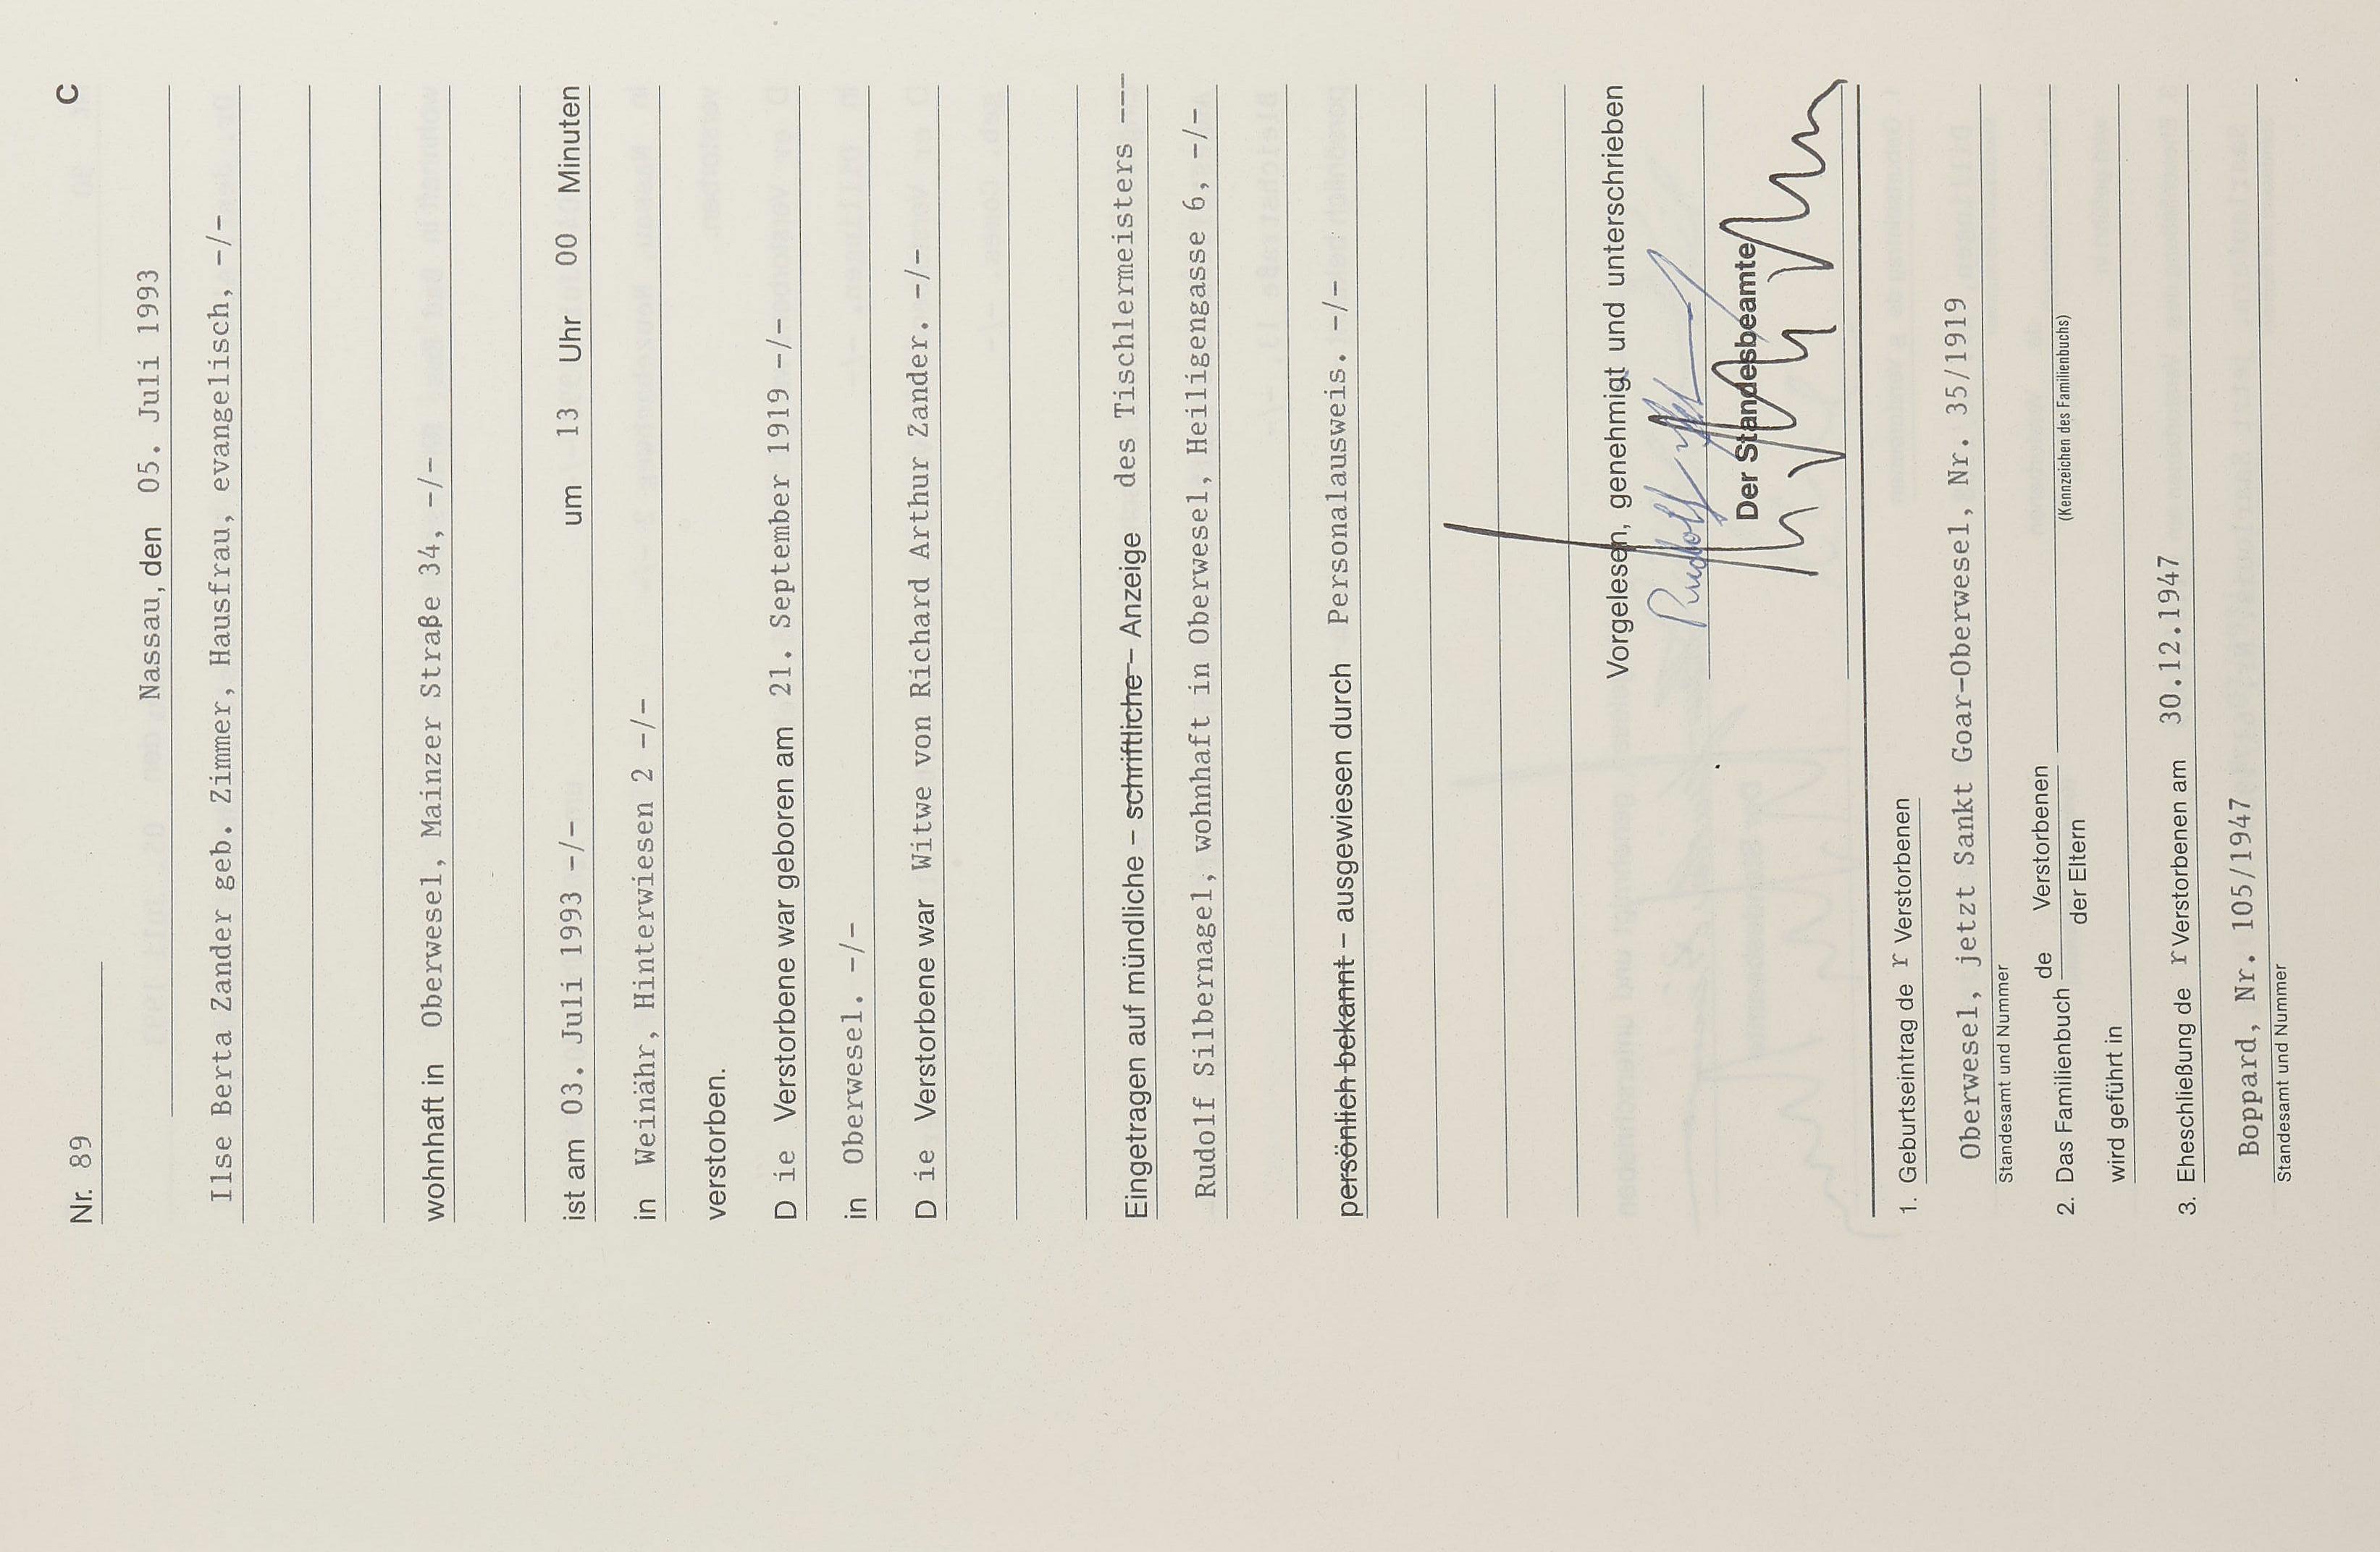 C
Nr. 89
Nassau, den 05. Juli 1993
Ilse Berta Zander geb. Zimmer, Hausfrau, evangelisch, -/-
wohnhaft in Oberwesel, Mainzer Straße 34, -/-
ist am 03. Juli 1993 -/- um 13 Uhr 00 Minuten
in Weinähr, Hinterwiesen 2 -/-
verstorben.
D ie Verstorbene war geboren am 21. September 1919 -/-
in Oberwesel. -/-
D ie Verstorbene war Witwe von Richard Arthur Zander. -/-
Eingetragen auf mündliche – schriftliche – Anzeige des Tischlermeisters ---
Rudolf Silbernagel, wohnhaft in Oberwesel, Heiligengasse 6, -/-
persönlich bekannt – ausgewiesen durch Personalausweis. -/-
Vorgelesen, genehmigt und unterschrieben
Rudolf
Der Standesbeamte
1. Geburtseintrag de r Verstorbenen
Oberwesel, jetzt Sankt Goar-Oberwesel, Nr. 35/1919
Standesamt und Nummer
2. Das Familienbuch de Verstorbenen
der Eltern
(Kennzeichen des Familienbuchs)
wird geführt in
3. Eheschließung de r Verstorbenen am 30.12.1947
Boppard, Nr. 105/1947
Standesamt und Nummer